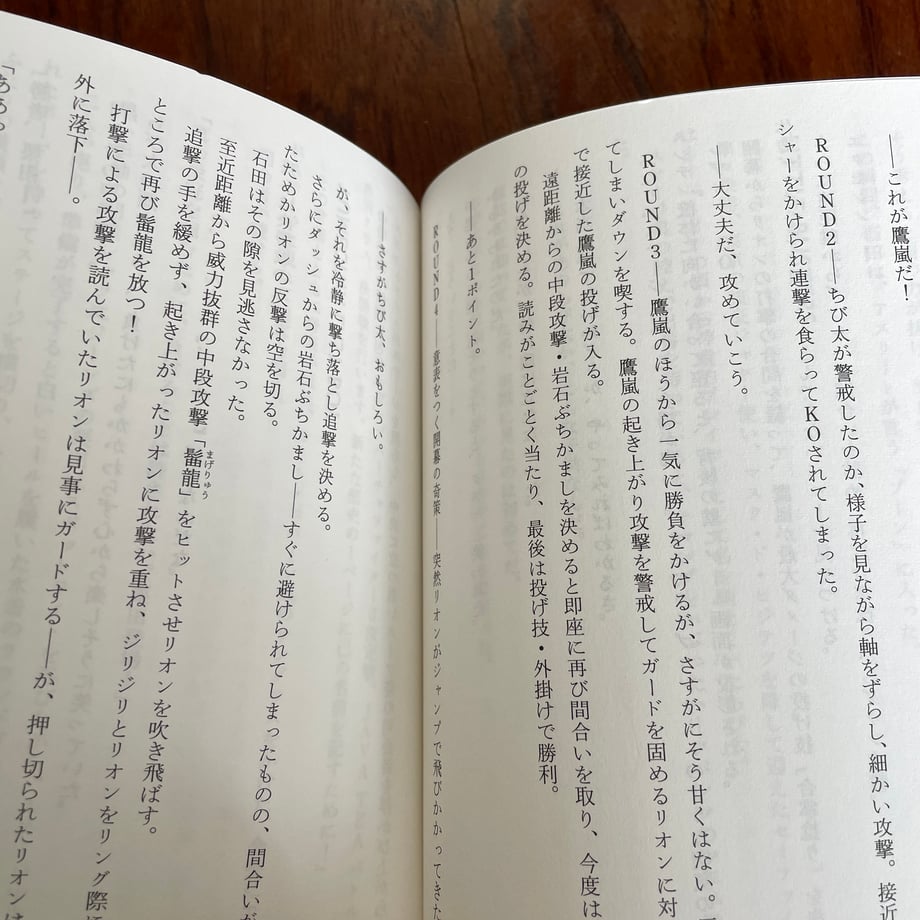 ——これが鷹嵐だ！
ROUND2——ちび太が警戒したのか、様子を見ながら軸をずらし、細かい攻撃。接近
シャーをかけられ連撃を食らってKOされてしまった。
——大丈夫だ、攻めていこう。
ROUND3——鷹嵐のほうから一気に勝負をかけるが、さすがにそう甘くはない。
てしまいダウンを喫する。鷹嵐の起き上がり攻撃を警戒してガードを固めるリオンに対
で接近した鷹嵐の投げが入る。
遠距離からの中段攻撃・岩石ぶちかましを決めると即座に再び間合いを取り、今度は
の投げを決める。読みがことごとく当たり、最後は投げ技・外掛けで勝利。
——あと1ポイント。
ROUND4——意表をつく開幕の奇策——突然リオンがジャンプで飛びかかってきた
——さすがちび太、おもしろい。
が、それを冷静に撃ち落とし追撃を決める。
さらにダッシュからの岩石ぶちかまし——すぐに避けられてしまったものの、間合いが
たためかリオンの反撃は空を切る。
石田はその隙を見逃さなかった。
至近距離から威力抜群の中段攻撃「髷龍」をヒットさせリオンを吹き飛ばす。
まげりゅう
追撃の手を緩めず、起き上がったリオンに攻撃を重ね、ジリジリとリオンをリング際に
ところで再び髷龍を放つ！
打撃による攻撃を読んでいたリオンは見事にガードする——が、押し切られたリオンは
外に落下——。
「ああっ